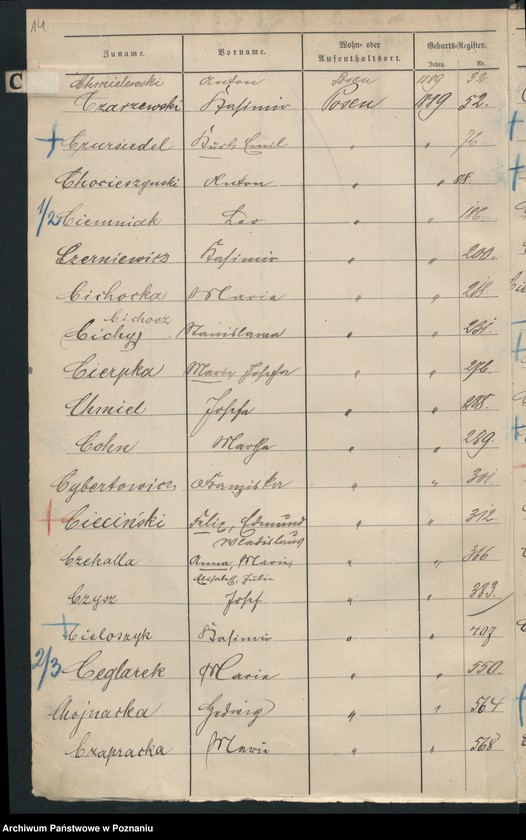 14
Zuname. Vorname. Wohn- oder Aufenthaltsort. Geburts-Register.
Jahrg. Nr.
C
Chmielewski Anton Posen 1889 22.
Czarzewski Kasimir Posen 1889 52.
+ Czursiedel Kurt Emil " " 76
Chocieszynski Anton " " 88.
1/2 Ciemniak Leo " " 186.
Czerniewicz Kasimir " " 200.
Cichocka Maria " " 218.
Cichosz
(Cichy) Stanislawa " " 231.
Cierpka Maria Josepha " " 276.
Chmiel Josefa " " 288.
Cohn Martha " " 289.
Cybertowicz Franziska " " 301.
+ Cieciński Felix, Edmund " " 312
Wladislaus
Czekalla Anna, Marie, " " 366
Elisabeth, Julie
Czysz Josef " " 383.
+ Cieloszyk Kasimir " " 407
2/3 Ceglarek Maria " " 550.
Chojnacka Hedwig " " 564
Czapracka Marie " " 568
Archiwum Państwowe w Poznaniu